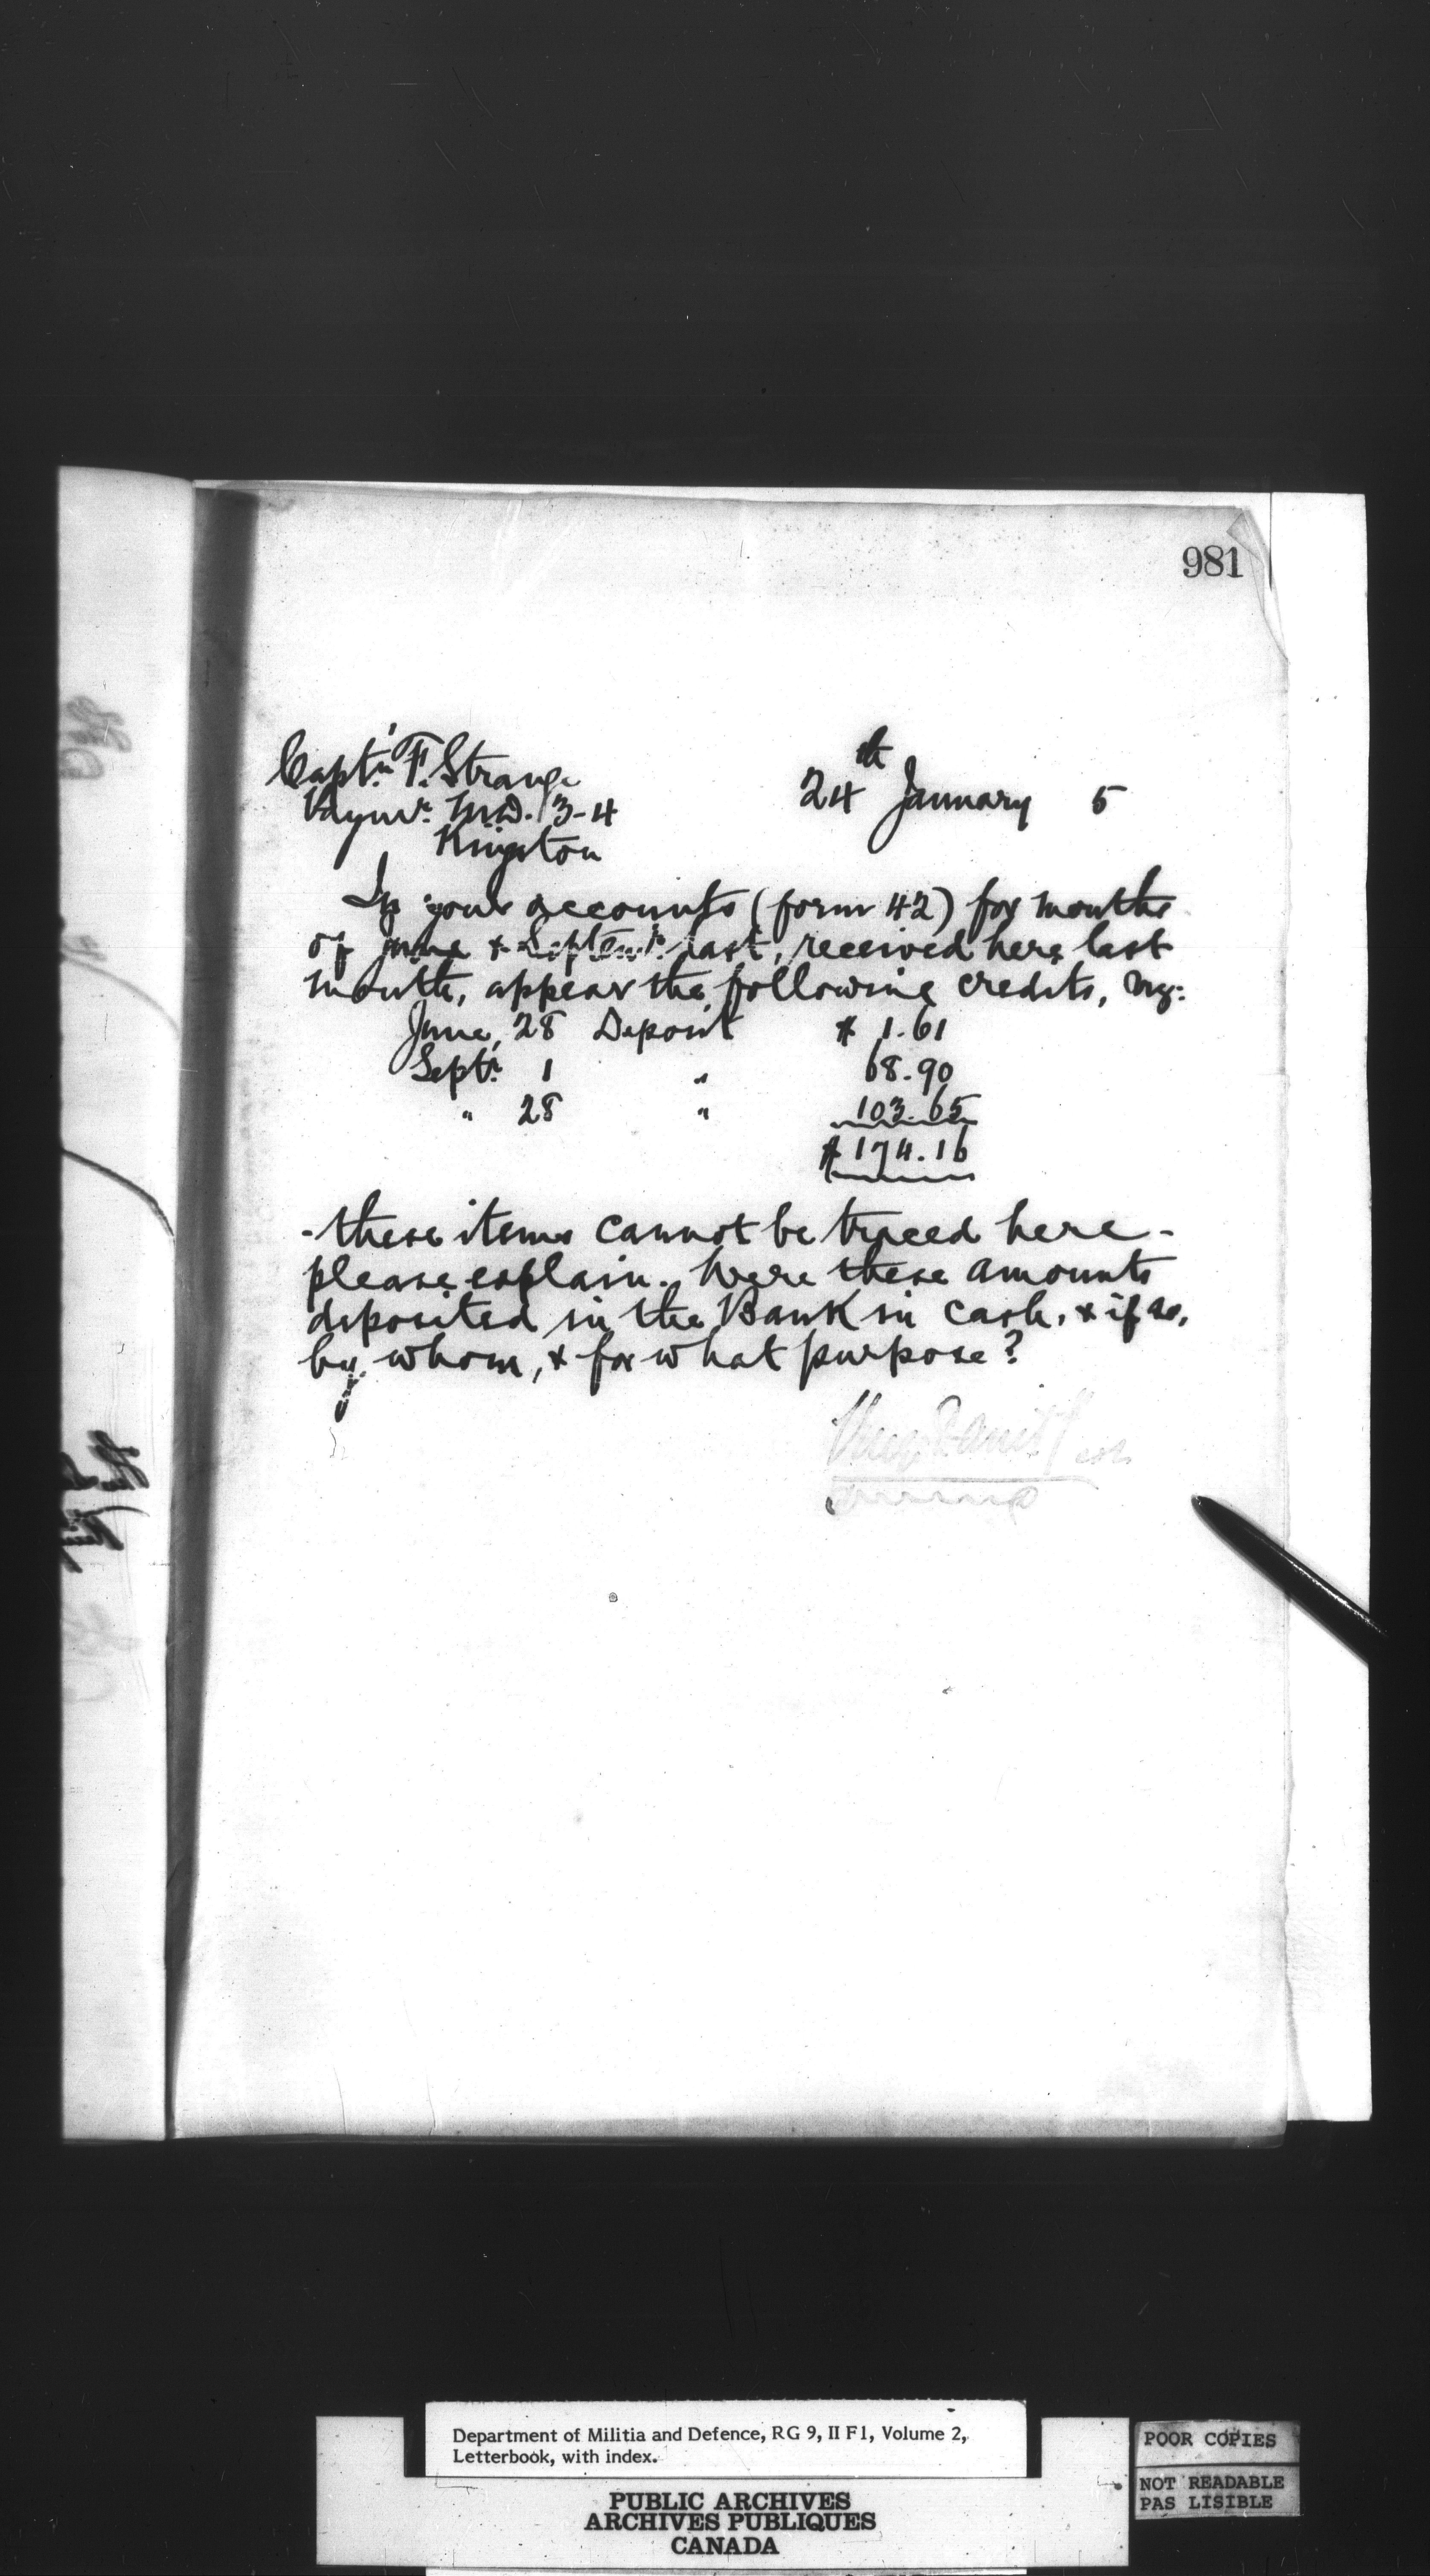 981
Capt.n F. Strange
Paymr. M.D. 3-4
Kingston
24th January 5
In your accounts (form 42) for months
of June & Septemr. last, received here last
month, appear the following credits, viz:
June, 28 Deposit $ 1.61
Septr. 1 " 68.90
" 28 " 103.65
$ 174.16
- these items cannot be traced here -
please explain. Were these amounts
deposited in the Bank in cash, & if so,
by whom, & for what purpose?
Department of Militia and Defence, RG 9, II F1, Volume 2,
Letterbook, with index.
PUBLIC ARCHIVES
ARCHIVES PUBLIQUES
CANADA
POOR COPIES
NOT READABLE
PAS LISIBLE